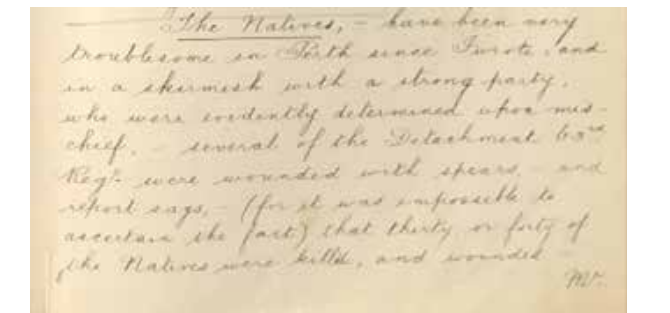 The Natives, - have been very
troublesome in Perth since I wrote, and
in a skirmish with a strong party,
who were evidently determined upon mis-
chief, - several of the Detachment 63rd
Regt. were wounded with spears, - and
report says, - (for it was impossible to
ascertain the fact) that thirty or forty of
the Natives were killed, and wounded -
Mr.